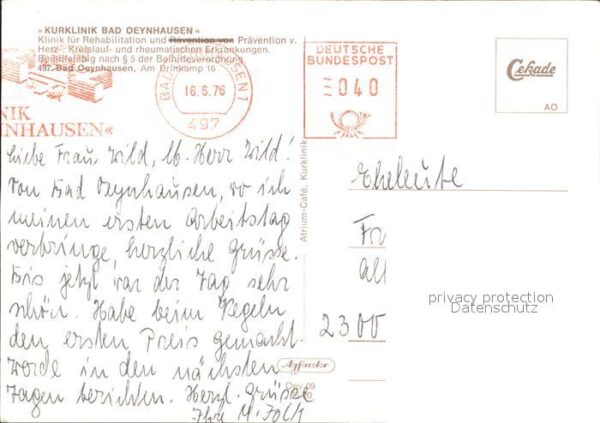 »KURKLINIK BAD OEYNHAUSEN«
Klinik für Rehabilitation und Prävention von Prävention v.
Herz-, Kreislauf- und rheumatischen Erkrankungen.
Beihilfefähig nach § 5 der Beihilfeverordnung
497 Bad Oeynhausen, Am Brinkamp 16
NIK
YNHAUSEN«
16.6.76
497
DEUTSCHE
BUNDESPOST
040
Cekade
AO
Liebe Frau Wild, lb. Herr Wild!
Von Bad Oeynhausen, wo ich
meinen ersten Arbeitstag
verbringe, herzliche Grüsse.
Bis jetzt war der Tag sehr
schön. Habe beim Kegeln
den ersten Preis gemacht.
Werde in den nächsten
Tagen berichten. Herzl. Grüsse
Ihre M.
Atrium-Café, Kurklinik
Agfacolor
Oey 09
Eheleute
Fr
2300
privacy protection
Datenschutz